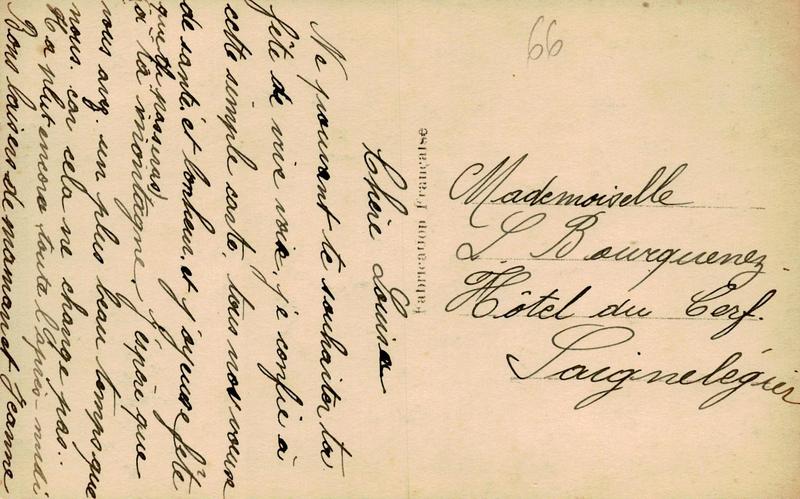 66
Chère Louisa
Ne pouvant te souhaiter ta
fête de vive voix, je confie à
cette simple carte, tous nos voeux
de santé, et bonheur, et joyeuse fête
que tu passeras
à la montagne. J'espère que
vous avez un plus beau temps que
nous. car cela ne change pas..
Il a plut encore toute l'après-midi
Bons baisers de maman et Jeanne
Fabrication Française
Mademoiselle
L Bourquenez.
Hôtel du Cerf.
Saignelégier